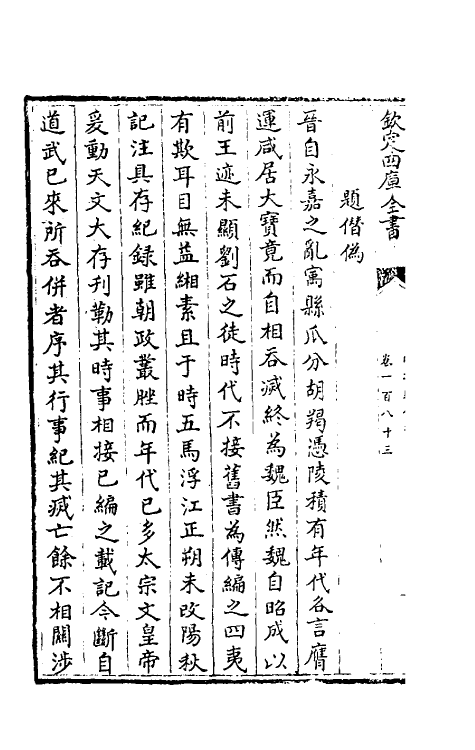 欽定四庫全書
卷一百八十三
題僭偽
晉自永嘉之亂寓縣瓜分胡羯憑陵積有年代各言膺
運咸居大寶竟而自相吞滅終為魏臣然魏自昭成以
前王迹未顯劉石之徒時代不接舊書為傳編之四夷
有欺耳目無益緗素且于時五馬浮江正朔未改陽秋
記注具存紀録雖朝政叢脞而年代已多太宗文皇帝
爰動天文大存刋勒其時事相接已編之載記今斷自
道武已來所吞併者序其行事紀其滅亡餘不相關涉